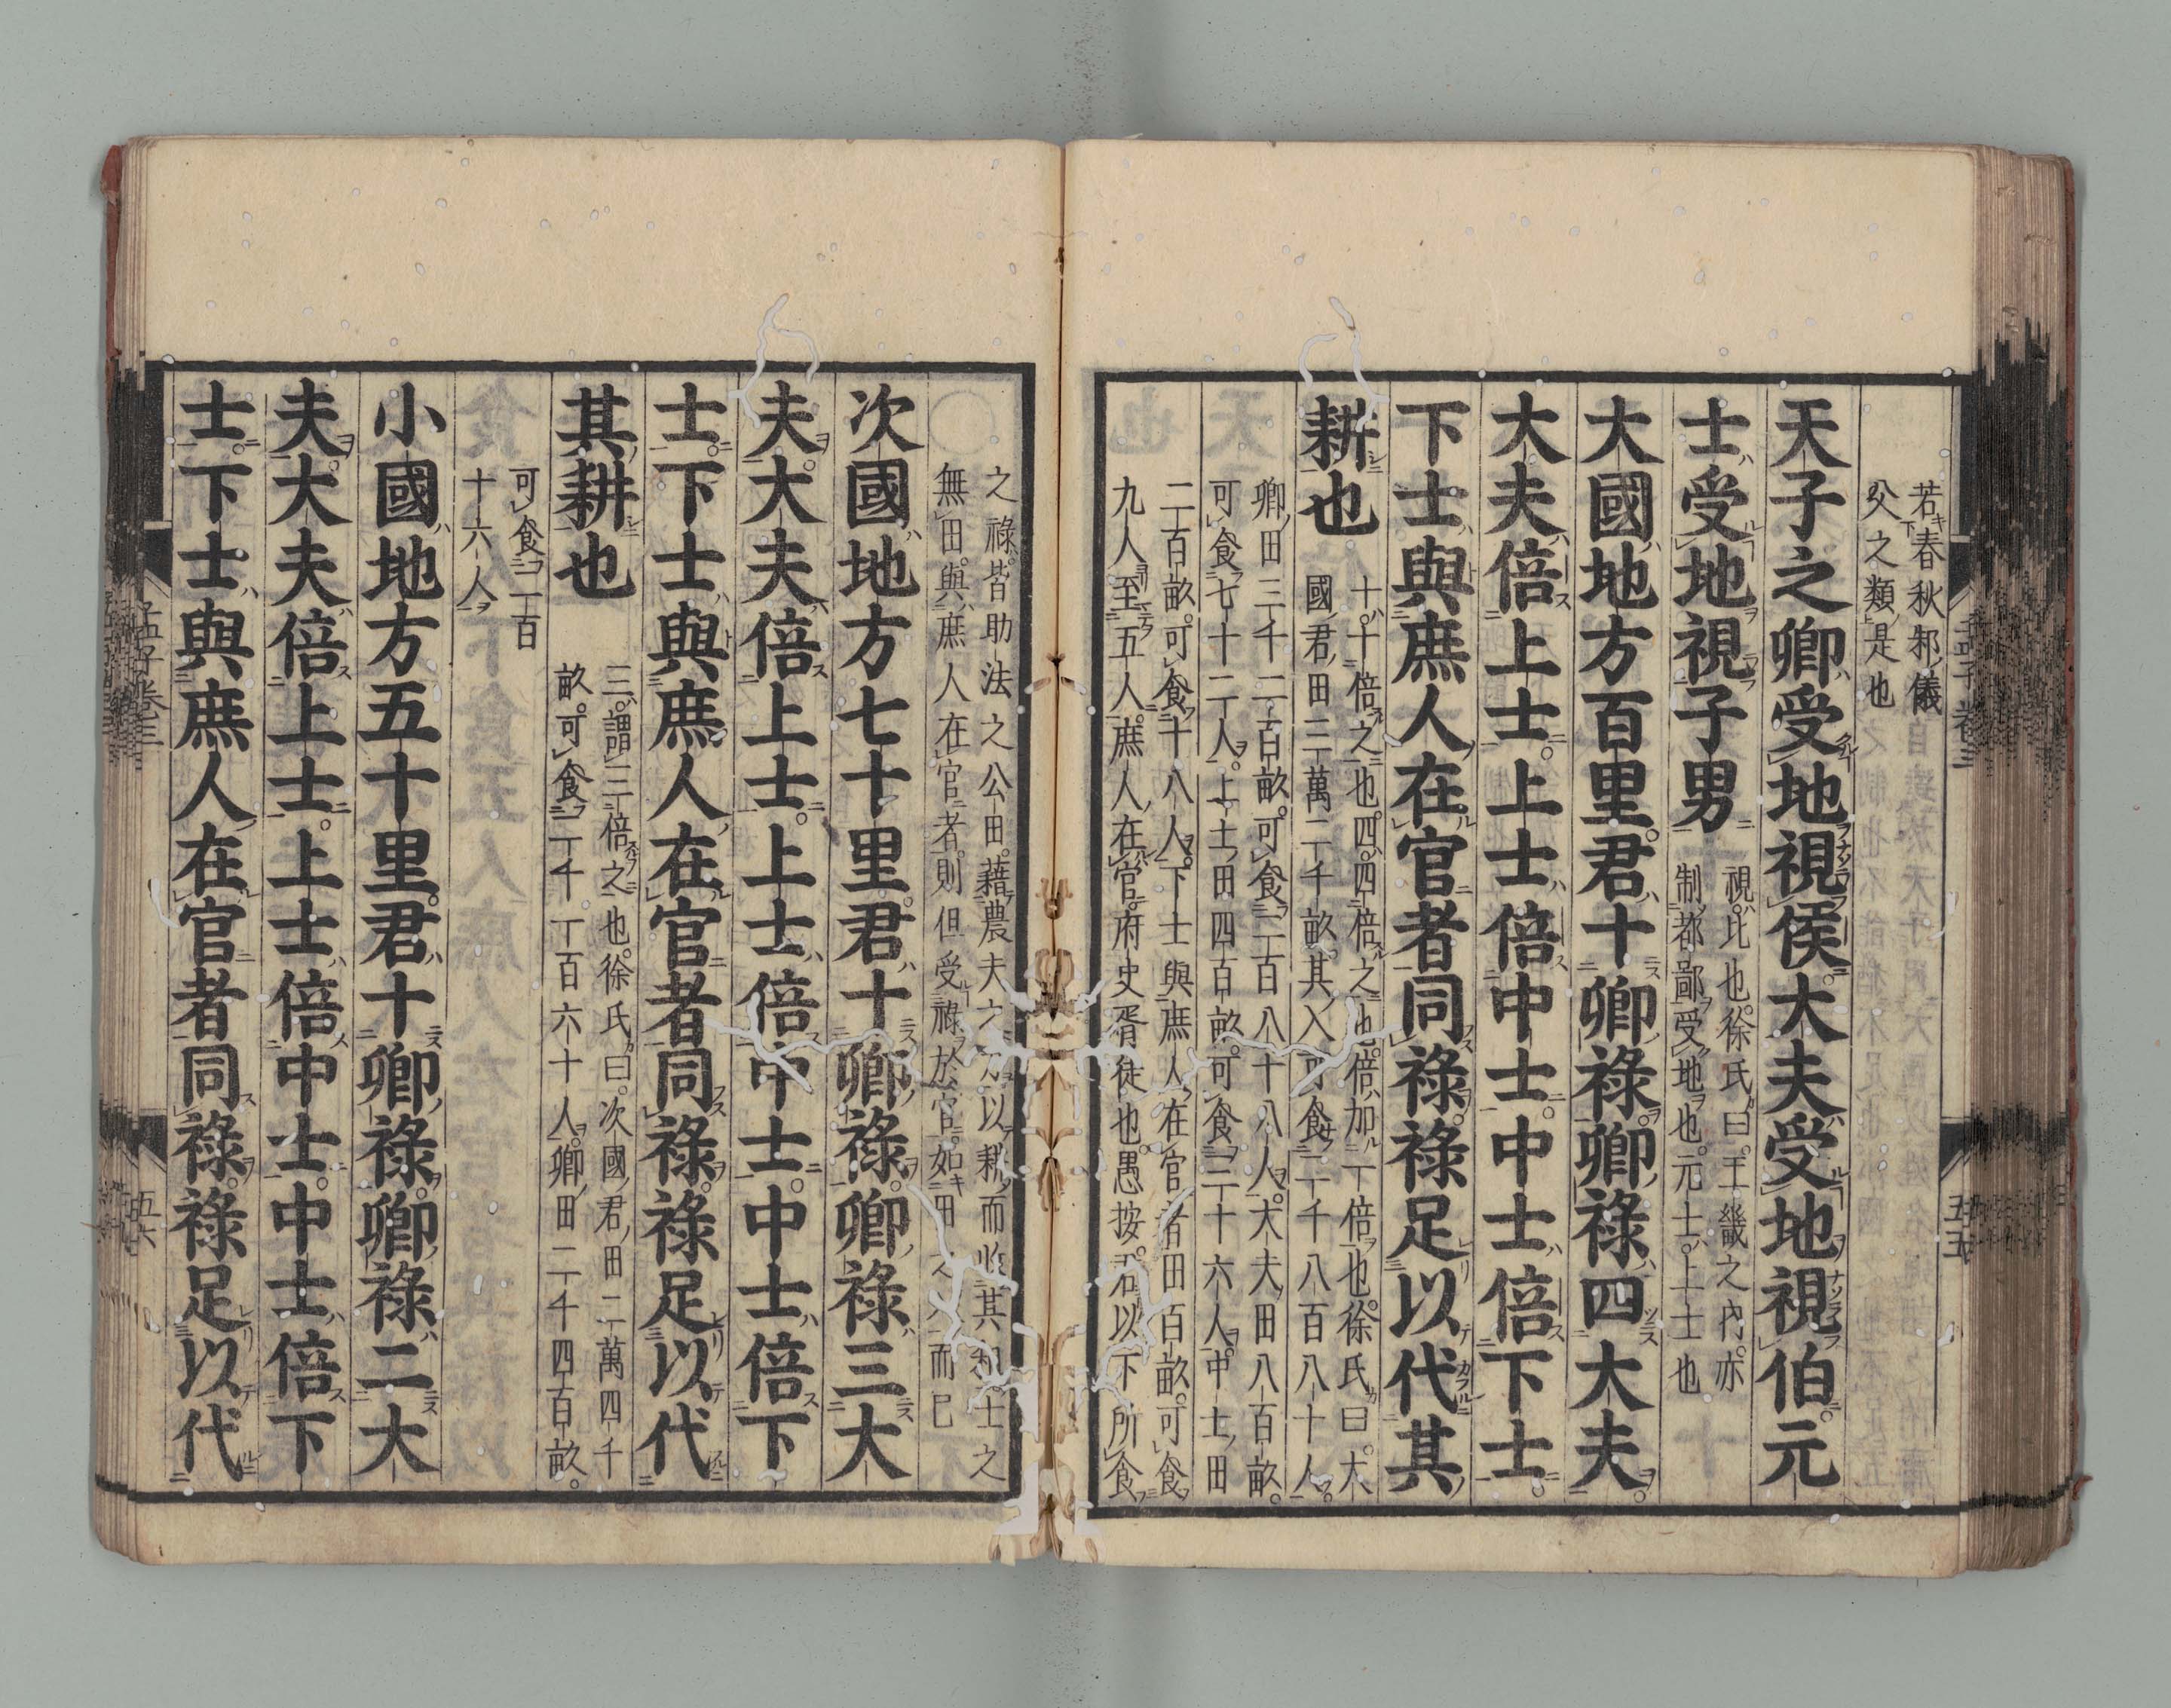 若春秋邾儀
父之類是也
天子之卿受地視侯大夫受地視伯元
士受地視子男
視比也徐氏曰王畿之內亦
制都鄙受地也元士上士也
大國地方百里君十卿祿卿祿四大夫
大夫倍上士上士倍中士中士倍下士
下士與庶人在官者同祿祿足以代其
耕也
十十倍之也四四倍之也倍加一倍也徐氏曰大
國君田三萬二千畝其入可食二千八百八十人
卿田三千二百畝可食二百八十八人大夫田八百畝
可食七十二人上士田四百畝可食三十六人中士田
二百畝可食十八人下士與庶人在官者田百畝可食
九人至五人庶人在官府史胥徒也愚按君以下所食
之祿皆助法之公田藉農夫之力以耕而收其租士之
無田與庶人在官者則但受祿於官如田之入而已
次國地方七十里君十卿祿卿祿三大
夫大夫倍上士上士倍中士中士倍下
士下士與庶人在官者同祿祿足以代
其耕也
三謂三倍之也徐氏曰次國君田二萬四千
畝可食二千一百六十人卿田二千四百畝
可食二百
十六人
小國地方五十里君十卿祿卿祿二大
夫大夫倍上士上士倍中士中士倍下
士下士與庶人在官者同祿祿足以代
孟子卷三
五六